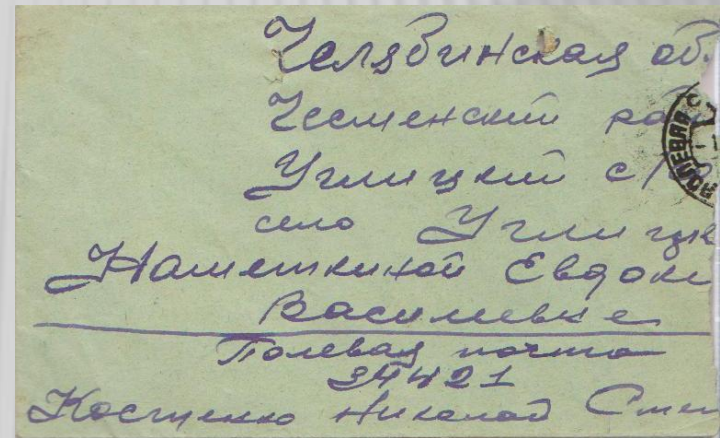 Челябинская об
Чесменский рай
Углицкий с/
село Углицк
Наметкиной Евдоки
Василевне
Полевая почта
34421
Костенко Николай Степ
ПОЛЕВАЯ